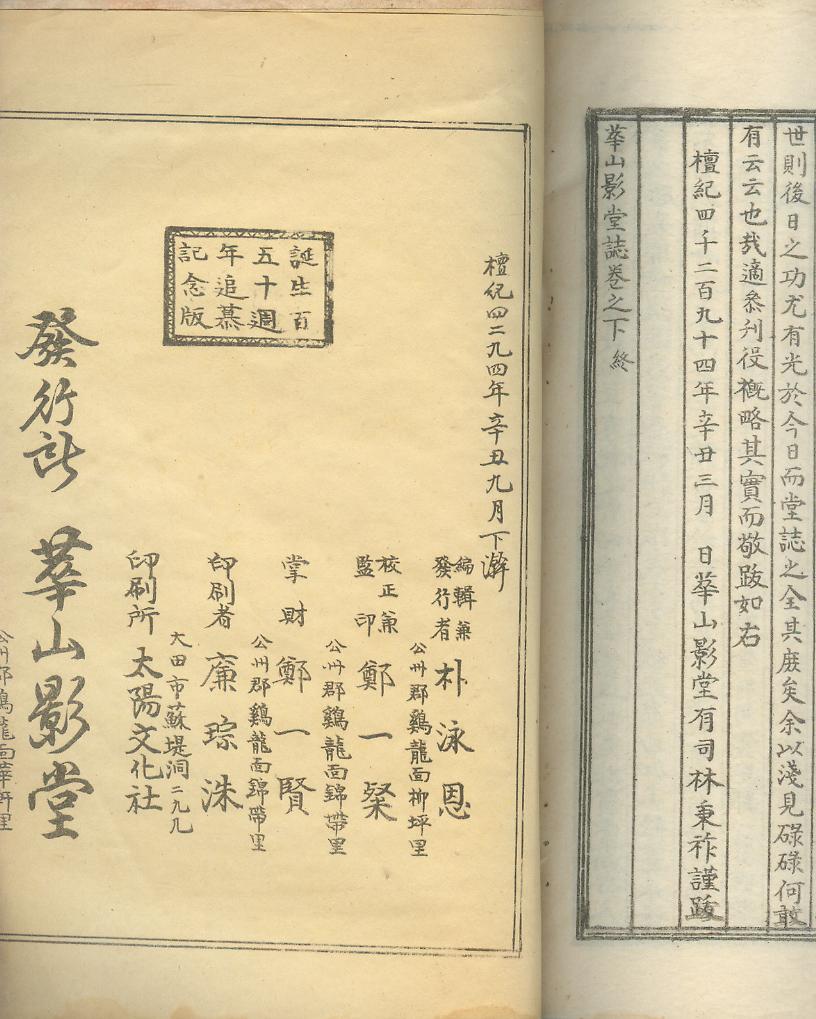 世則後日之功尤有光於今日而堂誌之全其庶矣余以淺見碌碌何敢
有云云也哉適參刋役概略其實而敬跋如右
檀紀四千二百九十四年辛丑三月 日華山影堂有司林秉祚謹跋
華山影堂誌卷之下 終
檀紀四二九四年辛丑九月下澣
誕生百
五十週
年追慕
記念版
編輯兼
發行者 朴泳恩
公州郡鷄龍面柳坪里
校正兼
監印 鄭一粲
公州郡鷄龍面錦帶里
掌財 鄭一賢
公州郡鷄龍面錦帶里
印刷者 廉琮洙
大田市蘇堤洞二九九
印刷所 太陽文化社
發行所 華山影堂
公州郡鷄龍面華軒里